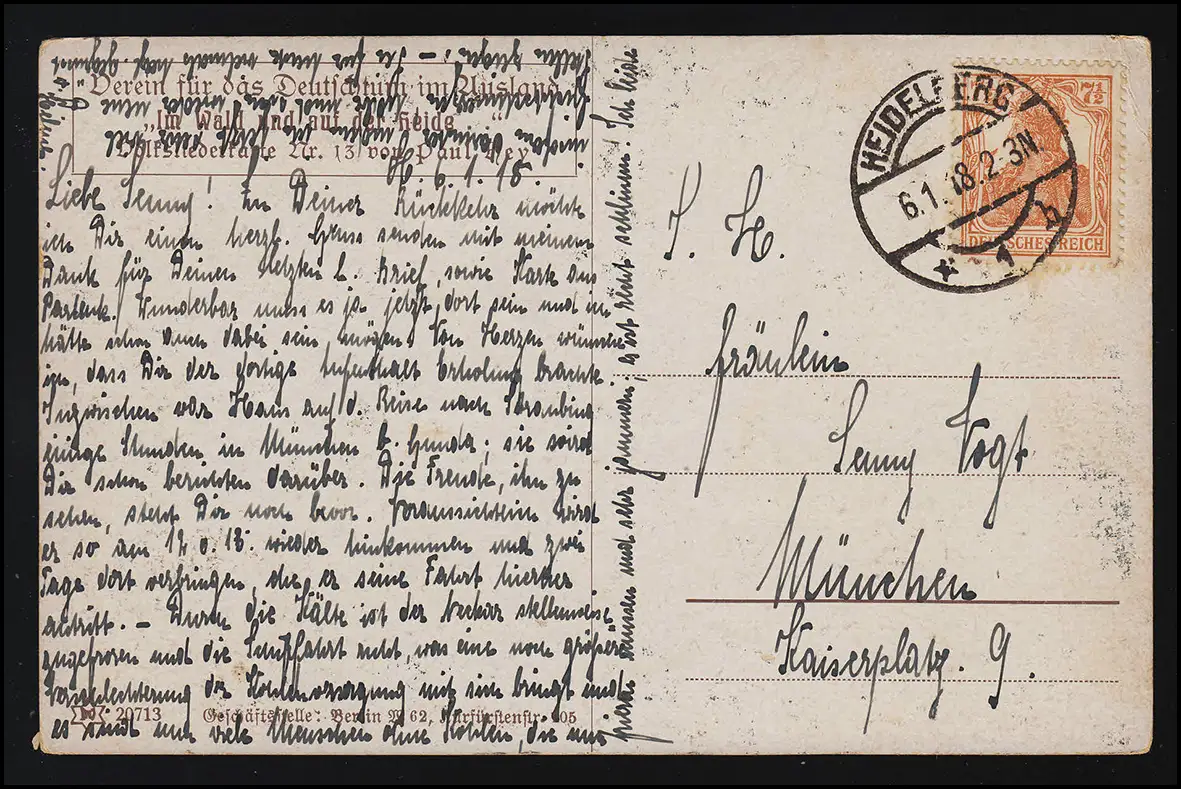 "Verein für das Deutschtum im Ausland"
"Im Wald und auf der Heide"
Volksliederkarte Nr. 13 von Paul Hey
H. 6.1.18.
Liebe Senny! Zu Deiner Rückkehr möchte
ich Dir einen herzl. Gruss senden mit meinem
Dank für Deinen letzten l. Brief, sowie Karte aus
Partenk. Wunderbar muss es ja jetzt dort sein und ich
hätte schon auch dabei sein mögen. Von Herzen wünsche
ich, dass Dir der dortige Aufenthalt Erholung brachte.
Inzwischen war Hans auf d. Reise nach Straubing
einige Stunden in München b. Gunda; sie wird
Dir schon berichten darüber. Die Freude, ihn zu
sehen, steht Dir noch bevor. Voraussichtlich wird
er so am 12 o. 13. wieder hinkommen und zwei
Tage dort verbringen, ehe er seine Fahrt hierher
antritt. – Durch die Kälte ist der Neckar stellenweise
zugefroren und die Schiffahrt ruht, was eine noch größere
Verschlechterung der Kohlenversorgung mit sich bringt und
es sind nun viele Menschen ohne Kohlen, die nun
frieren müssen und sehr jammern; es ist recht schlimm. Ich leide
20713
Geschäftsstelle: Berlin W 62, Kurfürstenstr. 105
HEIDELBERG
6.1.18.2-3N.
* 1 h
7½
DEUTSCHES REICH
I. H.
Fräulein
Senny Vogt
München
Kaiserplatz. 9.